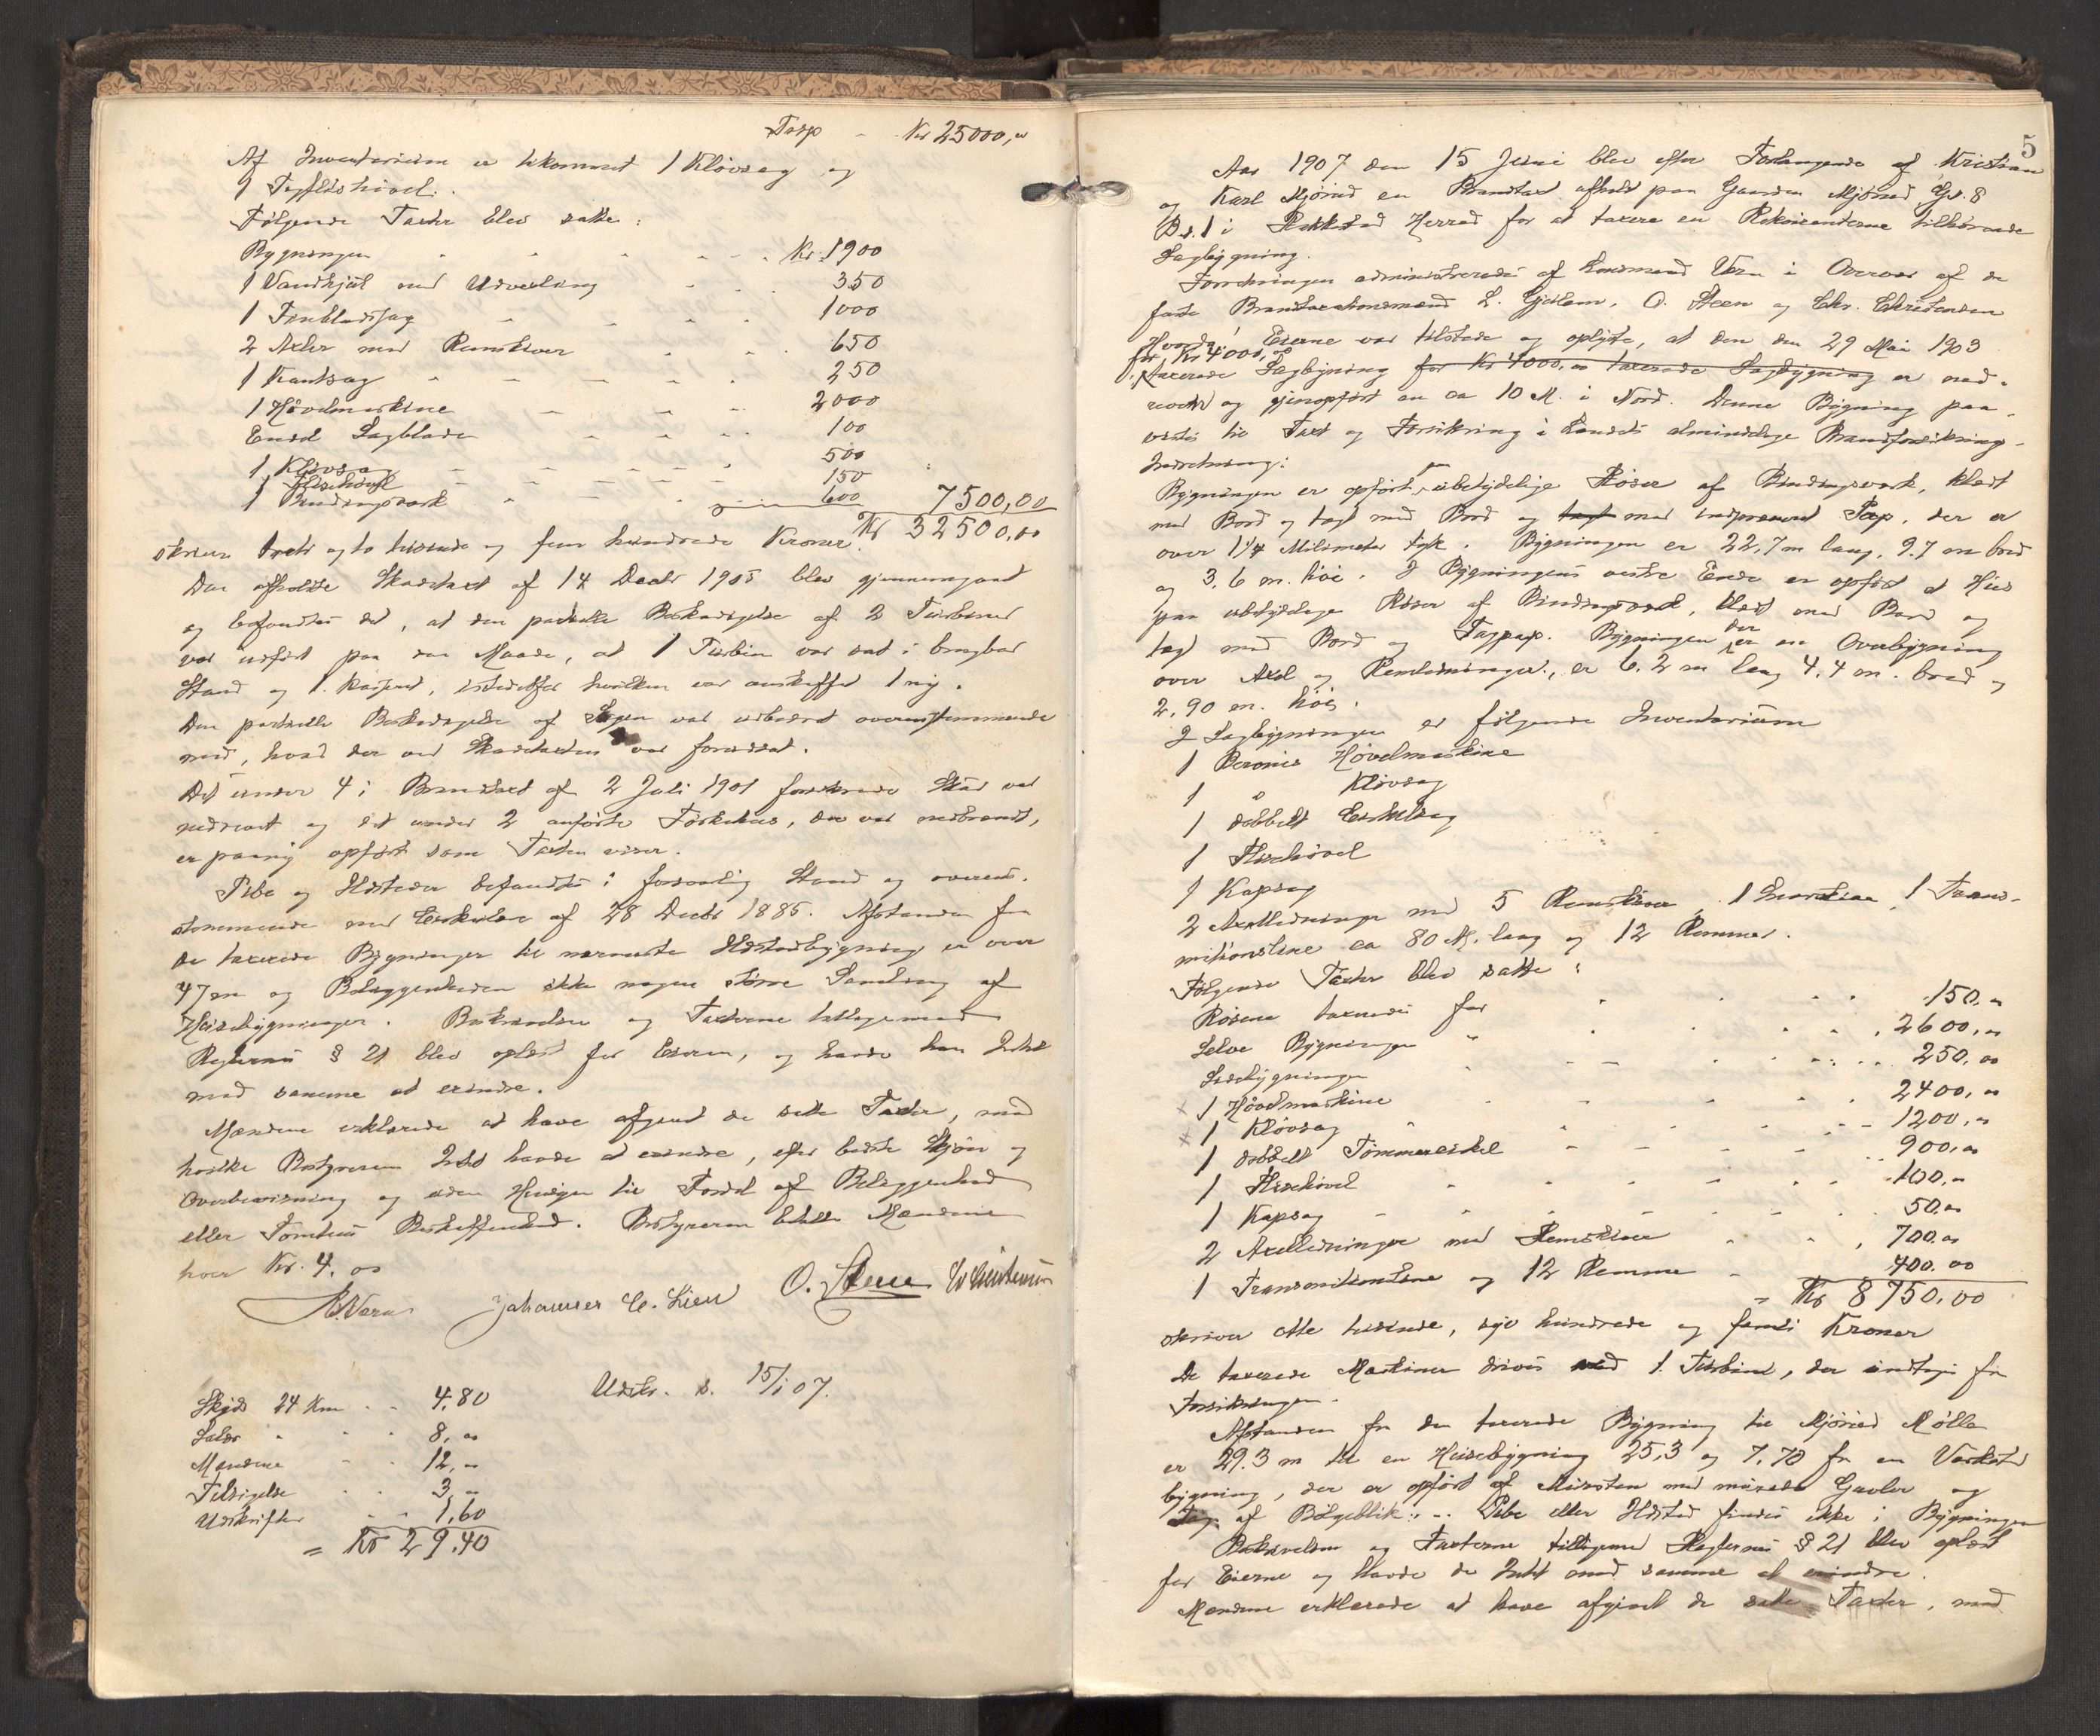 Trsp - Kr 25000,00
Af Inventarium er tilkommet 1 Kløvsag og
1 Flishøvel.
Følgende Taxter blev satte:
Bygningen Kr. 1900
1 Vandhjul med Udvexling 350
1 Finbladsag 1000
2 Axler med Remskiver 650
1 Kantsag 250
1 Høvelmaskine 2000
Endel Sagblade 100
1 Kløvsag 500
1 Flishøvl 150
1 Bindingsværk 600 7500,00
Kr 32500,00
skriver Treti og to tusende og fem hundrede Kroner.
Den afholdte Skadetaxt af 14 Decbr 1905 blev gjennemgaaet
og befandtes det, at den partielle Beskadigelse af 2 Turbiner
var udført paa den Maade, at 1 Turbin var sat i brugbar
Stand og 1 kasseret, istedetfor hvilken var anskaffet 1 ny.
Den partielle Beskadigelse af Sagen var udbedret overensstemmende
med, hvad der ved Skadetaxten var forudsat.
Det under 4 i Brandtaxt af 2 Juli 1901 forsikrede Skur var
nedrevet og det under 2 anførte Tørkehus, der var nedbrændt,
er paany opført som Taxten viser.
Pibe og Ildsteder befandtes i forsvarlig Stand og overens-
stemmende med Cirkulære af 28 Decbr 1885. Afstanden fra
de taxerede Bygninger til nærmeste Ildstedbygning er over
47 m og Beliggenheden ikke nogen større Samling af
Husebygninger. Beskrivelsen og Taxterne tilligemed
Reglernes § 21 blev oplæst for Eieren, og havde han Intet
med samme at erindre.
Mændene erklærede at have afgivet de satte Taxter, mod
hvilke Bestyreren Intet havde at erindre, efter bedste Skjøn og
Overbevisning og uden Hensyn til Fordel af Beliggenhed
eller Tomtens Beskaffenhed. Bestyreren tilstod Mændene
hver Kr. 4,00
Johannes C. Lien O. Steen Chr Christensen
Skyds 24 Km 4,80 Udskr. d. 15/1 07.
Salær 8,00
Mændene 12,00
Tilsigelse 3,00
Udskrifter 1,60
= Kr 29,40
5
Aar 1907 den 15 Juni blev efter Forlangende af Kristian
og Karl Mjørud en Brandtaxt afholdt paa Gaarden Mjørud Gd. 8
Bd. 1 i Rakkestad Herred for at taxere en Rekvirenterne tilhørende
Sagbygning.
Forretningen administreredes af Lensmand Vern i Overvær af de
faste Brandtaxationsmænd L. Gjølem, O. Steen og Chr. Christensen
Eierne var tilstede og oplyste, at den den 29 Mai 1903
for Kr 4000,00
taxerede Sagbygning for Kr 4000,00 taxerede Sagbygning er ned-
revet og gjenopført en ca 10 M. i Nord. Denne Bygning paa-
vistes til Taxt og Forsikring i Landets almindelige Brandforsikrings-
Indretning:
Bygningen er opført paa ubetydelige Røser af Bindingsværk, klædt
med Bord og tagt med Bord og tagt med imprægneret Pap, der er
over 1 1/4 Milimeter tyk. Bygningen er 22,7 m lang, 9,7 m bred
og 3,6 m. høi. I Bygningens vestre Ende er opført et Hus
paa ubetydelige Røser af Bindingsværk, klædt med Bord og
tagt med Bord og Tagpap. Bygningen der er en Overbygning
over Axel og Remledninger, er 6,2 m lang 4,4 m. bred og
2,90 m. høi.
I Sagbygningen er følgende Inventarium
1 Høvelmaskine
1 " Kløvsag
1 dobbelt Cirkelsag
1 Flishøvel
1 Kapsag
2 Axelledninger med 5 Remskiver, 1 , 1 Trans-
mitionsline ca 80 M. lang og 12 Remmer.
Følgende Taxter blev satte:
Røserne taxeredes for 150,00
Selve Bygningen 2600,00
Sidebygningen 250,00
x 1 Høvelmaskine 2400,00
x 1 Kløvsag 1200,00
1 dobbelt Tømmercirkel 900,00
1 Flishøvel 100,00
1 Kapsag 50,00
2 Axelledninger med Remskiver 700,00
1 Transmitionsline og 12 Remmer 400,00
= Kr 8750,00
skriver otte tusinde, syv hundrede og femti Kroner
De taxerede Maskiner drives med 1 Turbine, der undtages fra
Forsikringen.
Afstanden fra den taxerede Bygning til Mjørud Mølle
er 29,3 m til en Husebygning 25,3 og 7,70 fra en Værksted
bygning, der er opført af Mursten med murede Gavler og
Tag af Bølgeblik. Pibe eller Ildsted findes ikke i Bygningen
Beskrivelsen og Taxterne tilligemed Reglernes § 21 blev oplæst
for Eierne og havde de Intet mod samme at erindre.
Mændene erklærede at have afgivet de satte Taxter, mod